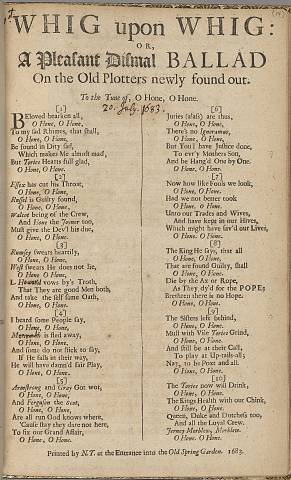 WHIG upon WHIG:
OR,
A Pleasant Dismal BALLAD
On the Old Plotters newly found out.
To the Tune of, O Hone, O Hone.
20. July. 1683.
[1]
BEloved hearken all,
O Hone, O Hone,
To my sad Rhimes, that shall,
O Hone, O Hone,
Be found in Ditty sad,
Which makes me almost mad,
But Tories Hearts full glad,
O Hone, O Hone.
[2]
Essex has cut his Throat,
O Hone, O Hone,
Russel is Guilty found,
O Hone, O Hone,
Walcot being of the Crew,
And Hone the Joyner too,
Must give the Dev'l his due,
O Hone, O Hone.
[3]
Rumsey swears heartily,
O Hone, O Hone,
West swears He does not lie,
O Hone, O Hone,
L. Howard vows by's Troth,
That They are good Men both,
And take the self same Oath,
O Hone, O Hone.
[4]
I heard some People say,
O Hone, O Hone,
is fled away,
O Hone, O Hone;
And some do not stick to say,
If He falls in their way,
He will have damn'd fair Play,
O Hone, O Hone.
[5]
Armstrong and Gray Got wot,
O Hone, O Hone,
And Ferguson the Scot,
O Hone, O Hone,
Are all run God knows where,
'Cause stay they dare not here,
To fix our Grand Affair,
O Hone, O Hone.
[6]
Juries (alass) are thus,
O Hone, O Hone,
There's no Ignoramus,
O Hone, O Hone,
But You'l have Justice done,
To ev'ry Mothers Son,
And be Hang'd One by One.
O Hone. O Hone.
[7]
Now how like Fools we look,
O Hone, O Hone,
Had we not better took
O Hone, O Hone.
Unto our Trades and Wives,
And have kept in our Hives,
Which might have sav'd our Lives,
O Hone. O Hone.
[8]
The King He says, that all
O Hone. O Hone.
That are found Guilty, shall
O Hone, O Hone.
Die by the Ax or Rope,
As They dy'd for the POPE;
Brethren there is no Hope.
O Hone, O Hone.
[9]
The Sisters left behind,
O Hone, O Hone.
Must with Vile Tories Grind,
O Hone, O Hone.
And still be at their Call,
To play at Up-tails-all;
Nay, to be Poxt and all.
O Hone, O Hone.
[10]
The Tories now will Drink,
O Hone, O Hone.
The Kings Health with our Chink,
O Hone, O Hone.
Queen, Duke and Dutchess too,
And all the Loyal Crew.
Jernny Morblew, Morblew.
O Hone, O Hone.
Printed by N.T. at the Entrance into the Old Spring Garden. 1683.